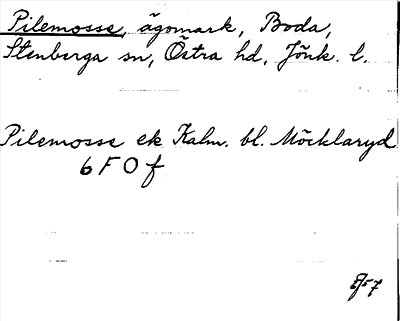 Pilemosse, ägomark, Boda,
Stenberga sn, Östra hd, Jönk. l.
Pilemosse ek Kalm. bl. Möcklaryd
6 F 0 f